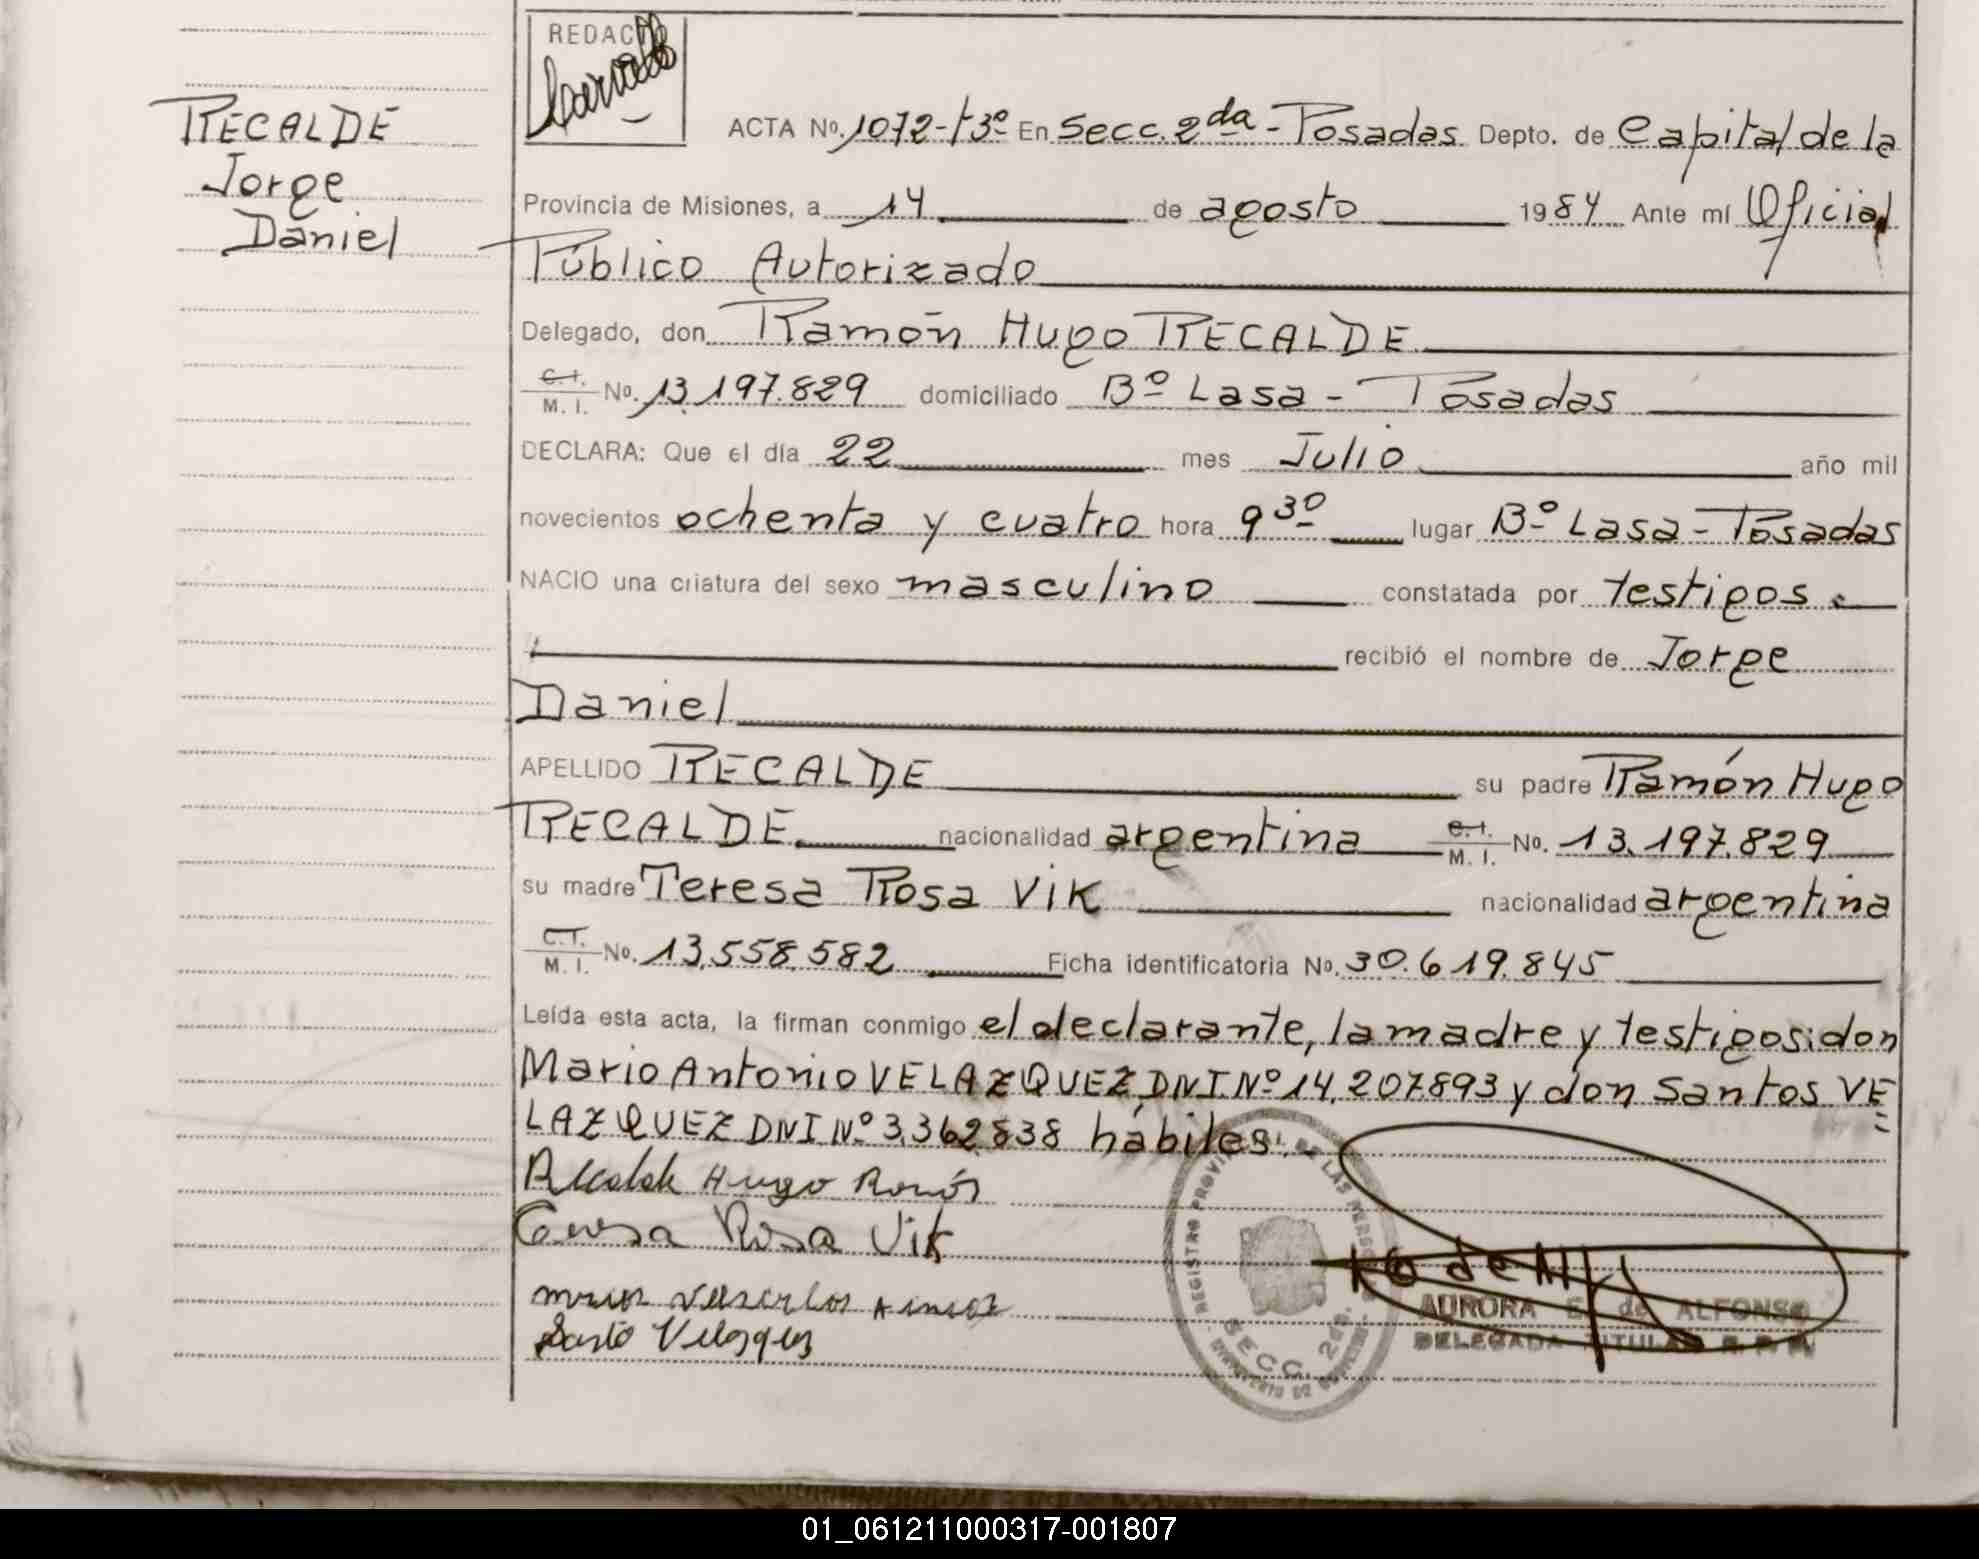 REDAC
RECALDE
Jorge
Daniel
ACTA No. 1072-t3º En Secc. 2da - Posadas Depto. de Capital de la
Provincia de Misiones, a 14 de agosto 1984 Ante mí Oficial
Público Autorizado
Delegado, don Ramón Hugo RECALDE
C.I. M. I. No. 13.197.829 domiciliado Bº Lasa - Posadas
DECLARA: Que el día 22 mes Julio año mil
novecientos ochenta y cuatro hora 9 30 lugar Bº Lasa - Posadas
NACIO una criatura del sexo masculino constatada por testigos
recibió el nombre de Jorge
Daniel
APELLIDO RECALDE su padre Ramón Hugo
RECALDE nacionalidad argentina C.I. M. I. No. 13.197.829
su madre Teresa Rosa Vik nacionalidad argentina
C.I. M. I. No. 13.558.582 Ficha identificatoria No. 30.619.845
Leída esta acta, la firman conmigo el declarante, la madre y testigos: don
Mario Antonio VELAZQUEZ DNI. Nº 14.207.893 y don Santos VE
LAZQUEZ DNI Nº 3.362.838 hábiles.
Hugo Ramón
Teresa Rosa Vik
Velasquez
REGISTRO PROVINCIAL DE LAS PERSONAS
SECC. 2da.
AURORA E. de ALFONSO
DELEGADA TITULAR R. P. P.
01_061211000317-001807